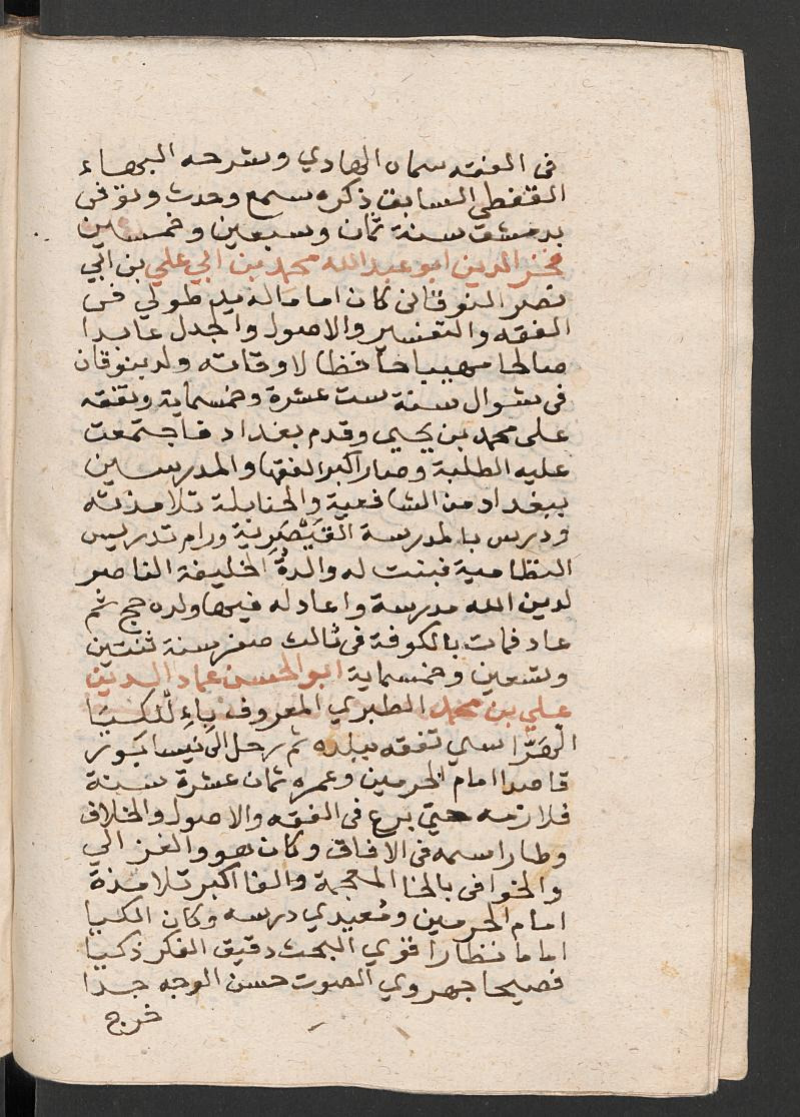 فى الفقه سماه الهادي وشرحه البهاء
القفطي السابق ذكره سمع وحدث وتوفى
بدمشق سنة ثمان وسبعين وخمسمين
فخر الدين ابو عبد الله محمد بن ابي علي بن ابي
نصر النوقانى كان اماما له يد طولي فى
الفقه والتفسير والاصول والجدل عابدا
صالحا مهيبا حافظا لاوقاته ولد بنوقان
فى شوال سنة ست عشرة وخمسماية وتفقه
على محمد بن يحيي وقدم بغداد فاجتمعت
عليه الطلبة وصار اكبر الفقها والمدرسين
ببغداد من الشافعية والحنابلة تلامذته
ودرس بالمدرسة القَيْصَرِية ورام تدريس
النظامية فبنت له والدةُ الخليفة الناصر
لدين الله مدرسة واعاد له فيها ولده حج ثم
عاد فمات بالكوفة فى ثالث صفر سنة ثنتين
وتسعين وخمسماية ابو الحسن عماد الدين
علي بن محمد الطبري المعروف بِاءِلْكيَا
الهَرَّاسي تفقه ببلده ثم رحل الى نيسابور
قاصدا امام الحرمين وعمره ثمان عشرة سنة
فلازمه حتي برع فى الفقه والاصول والخلاف
وطار اسمه فى الافاق وكان هو والغزالي
والخوافى بالخا المعجمة والفا اكبر تلامذة
امام الحرمين ومُعيدي درسه وكان الكيا
اماما نظارا قوي البحث دقيق الفكر ذكيا
فصيحا جهروي الصوت حسن الوجه جدا
خرج